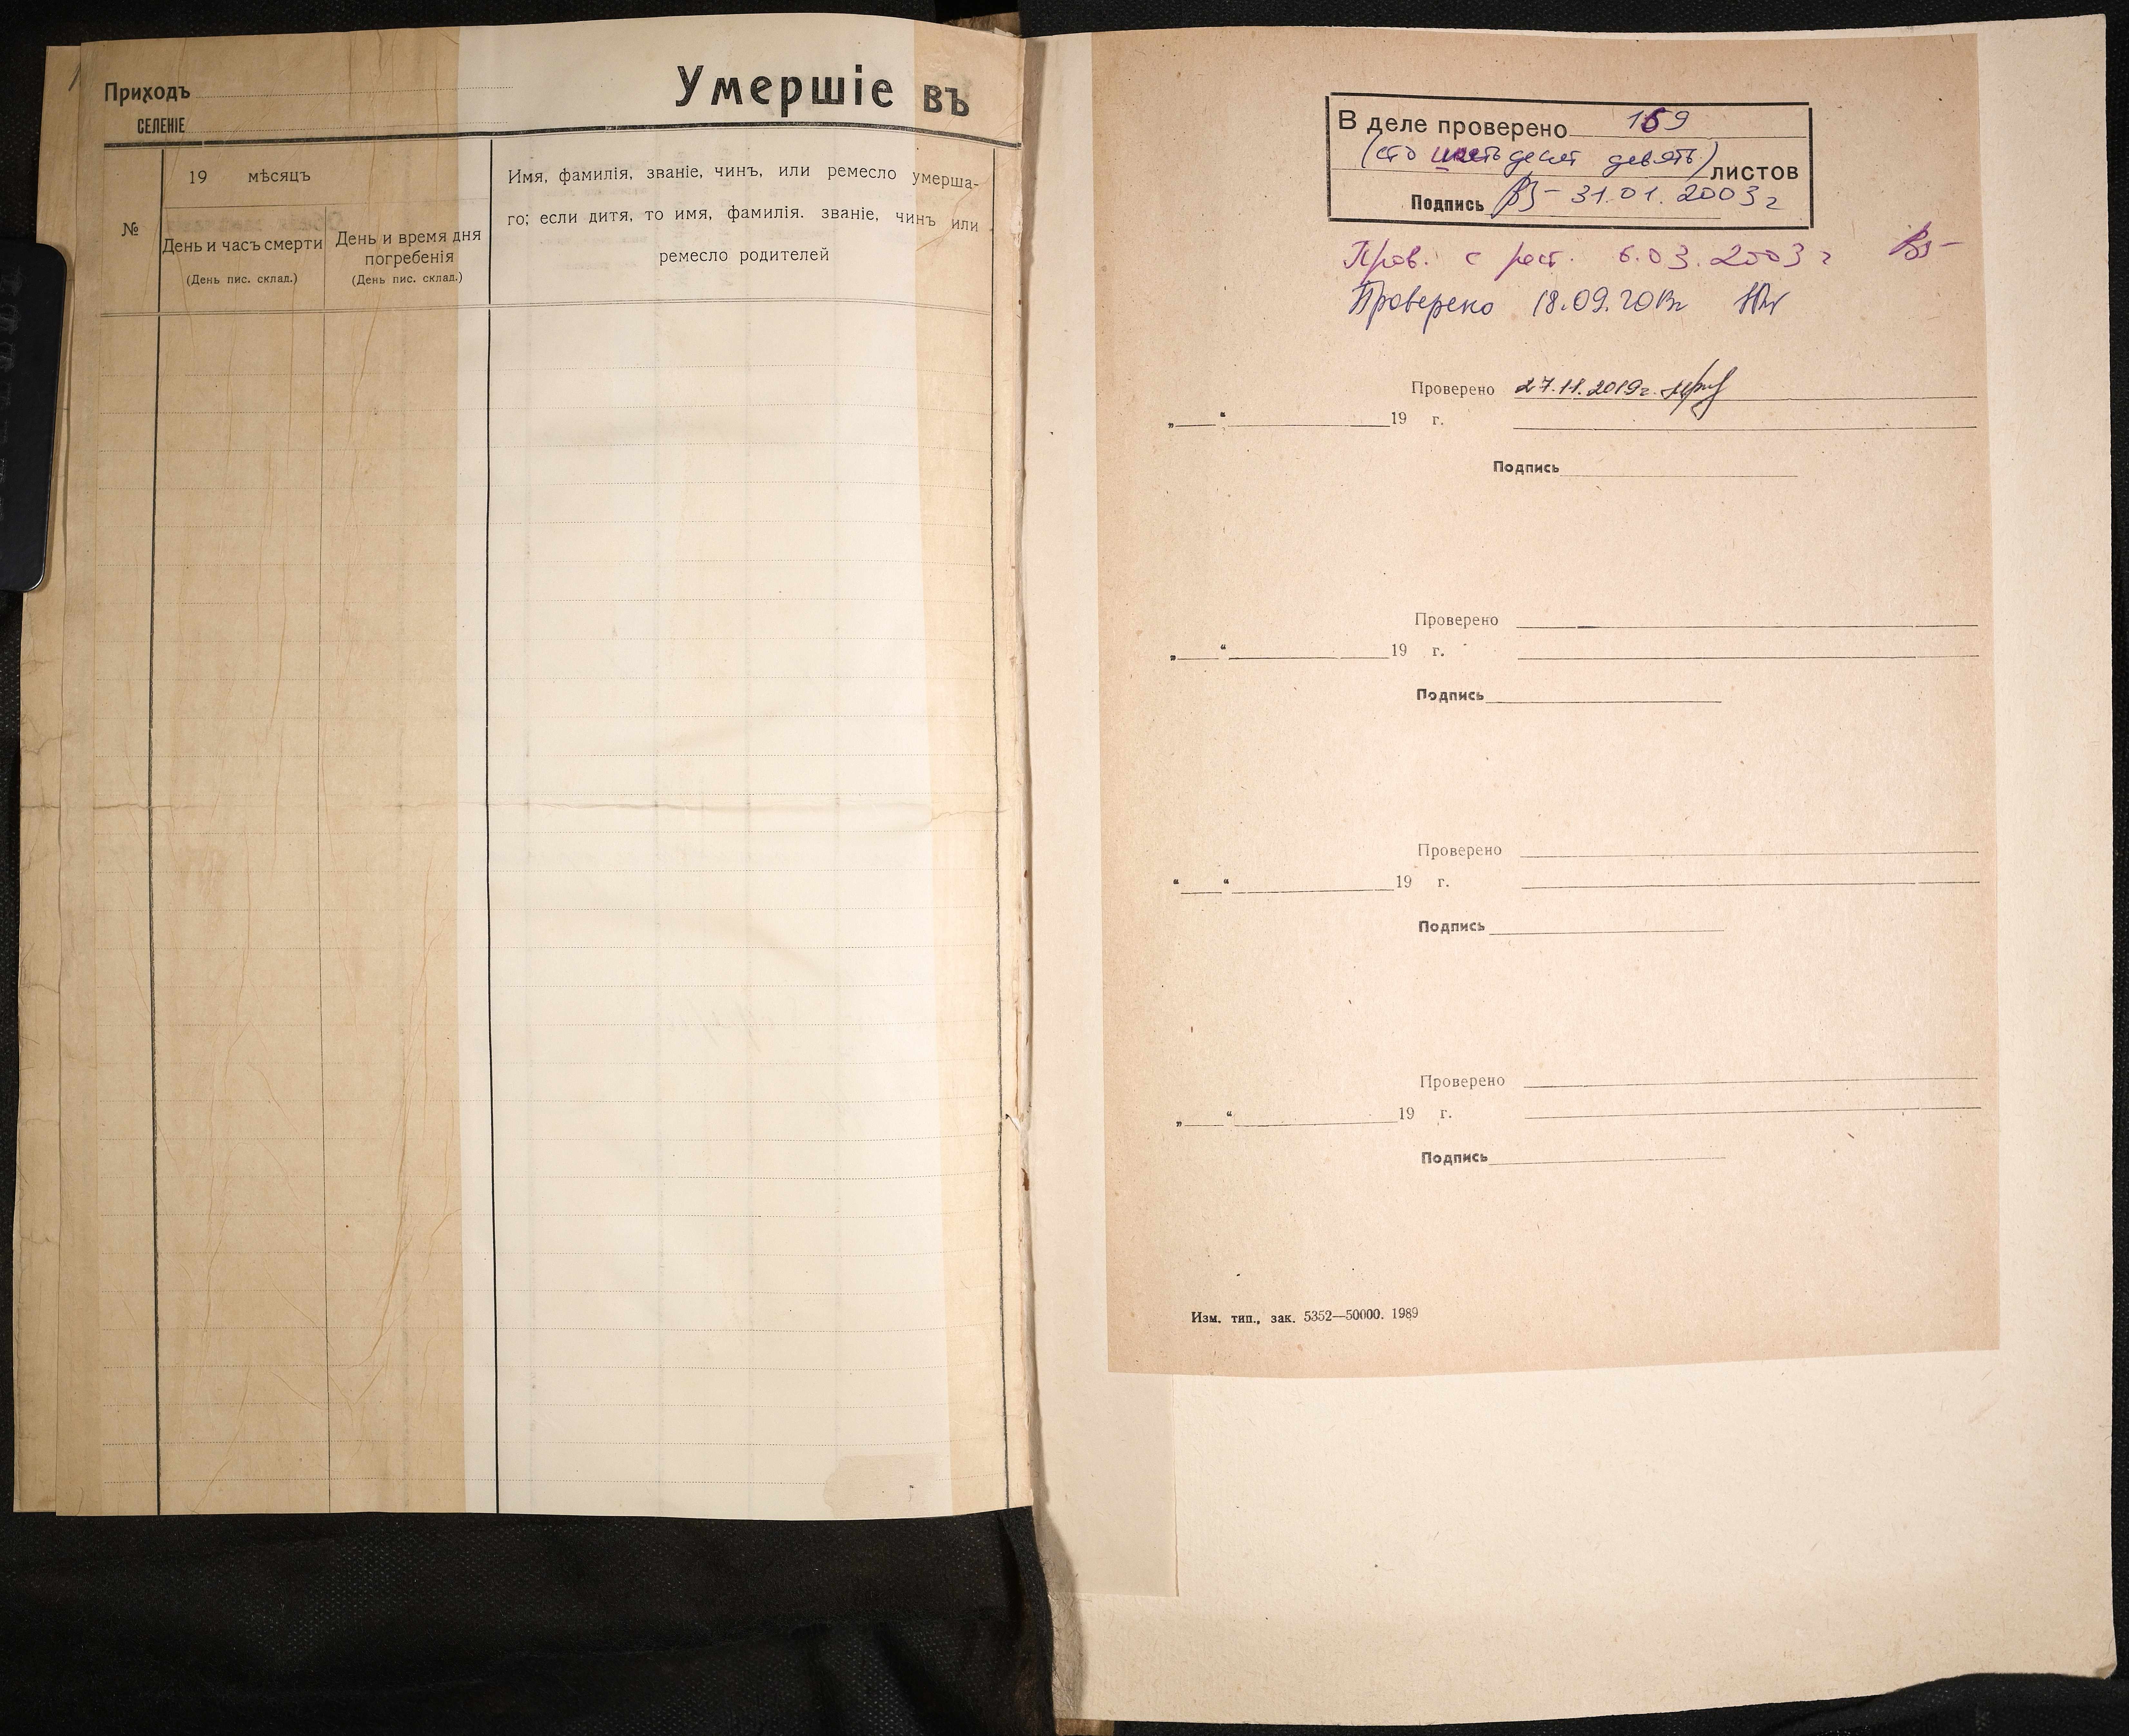 Приходъ
СЕЛЕНIЕ
Умершiе въ
№
19 мѣсяцъ
День и часъ смерти
(День пис. склад.)
День и время дня
погребенiя
(День пис. склад.)
Имя, фамилiя, званiе, чинъ, или ремесло умерша-
го; если дитя, то имя, фамилiя. званiе, чинъ или
ремесло родителей
В деле проверено 169
(сто шестьдесят девять)
листов
Подпись 31.01.2003 г
Пров. с рест. 6.03.2003 г
Проверено 18.09.2013г
Проверено 27.11.2019г.
„ “ 19 г.
Подпись
Проверено
„ “ 19 г.
Подпись
Проверено
“ “ 19 г.
Подпись
Проверено
„ “ 19 г.
Подпись
Изм. тип., зак. 5352—50000. 1989